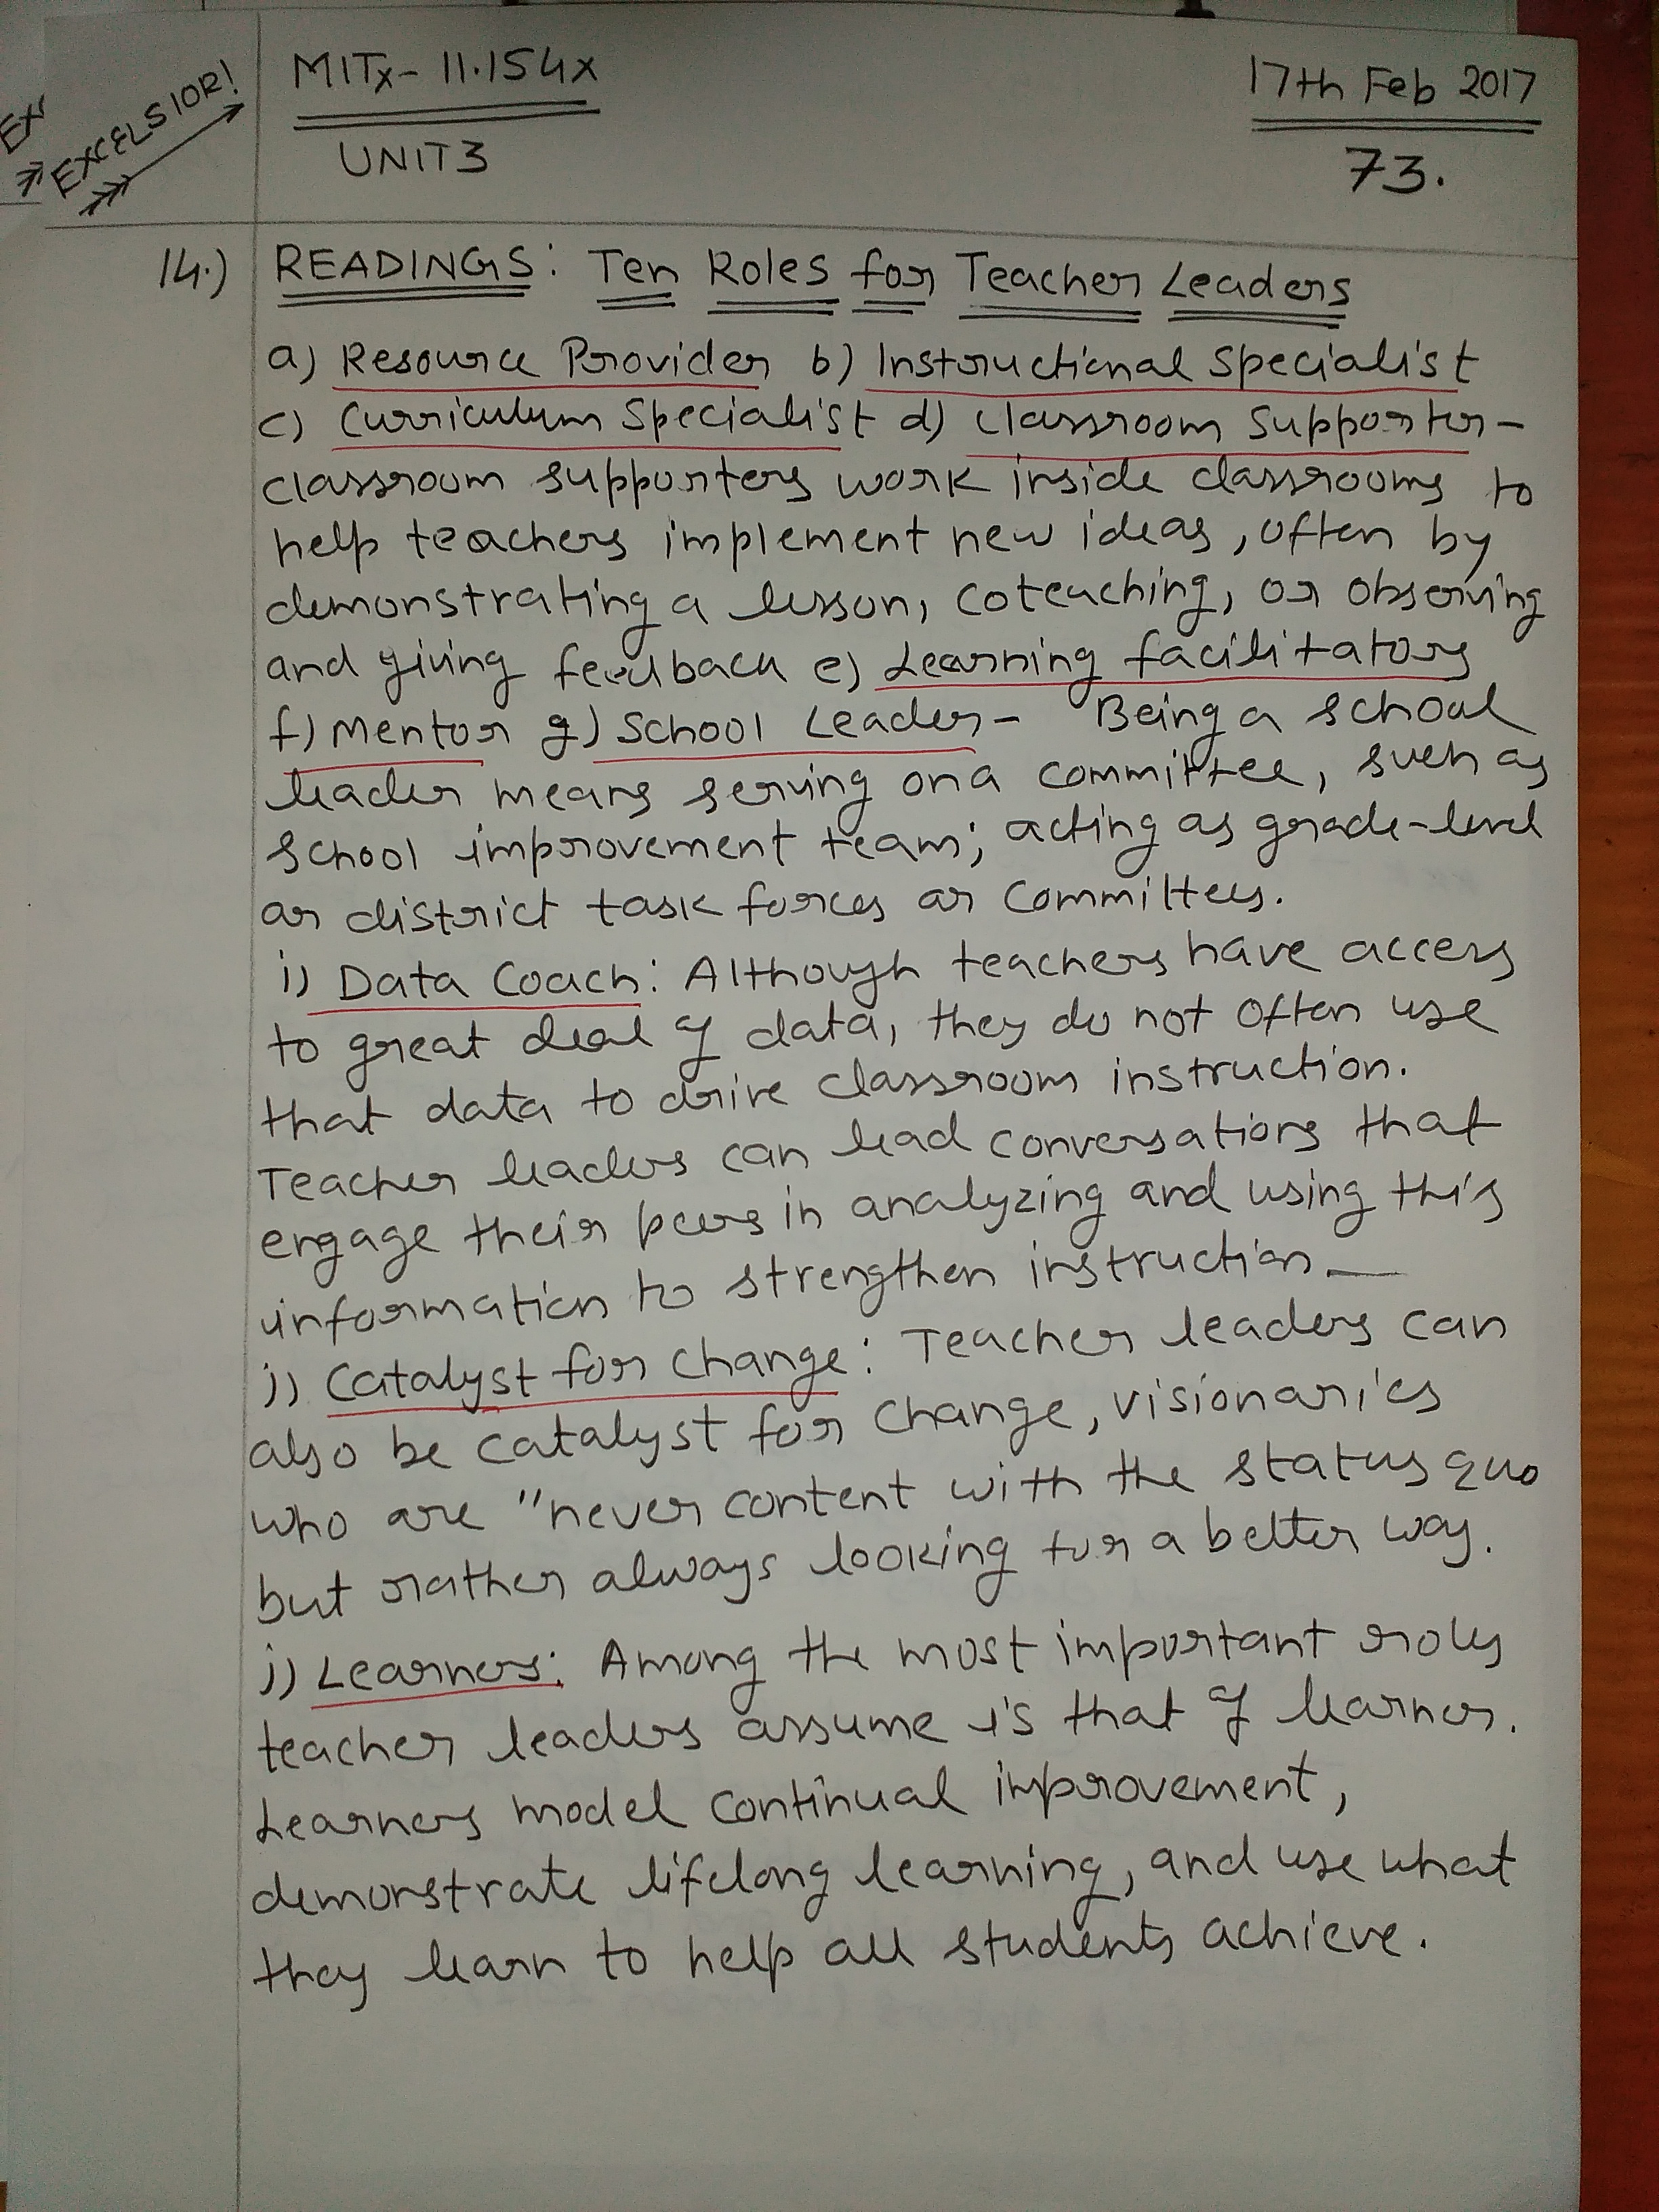 EX
EXCELSIOR!
MITx- 11.154x
UNIT3
17th Feb 2017
73.
14.) READINGS: Ten Roles for Teacher Leaders
a) Resource Provider b) Instructional Specialist
c) Curriculum Specialist d) Classroom Supporter-
classroom supporters work inside classrooms to
help teachers implement new ideas, often by
demonstrating a lesson, coteaching, or observing
and giving feedback e) Learning facilitators
f) Mentor g) School Leader- Being a school
leader means serving on a committee, such as
school improvement team; acting as grade-level
or district task forces or committees.
i) Data Coach: Although teachers have access
to great deal of data, they do not often use
that data to drive classroom instruction.
Teacher leaders can lead conversations that
engage their peers in analyzing and using this
information to strengthen instruction_
j) Catalyst for Change: Teacher leaders can
also be catalyst for change, visionaries
who are "never content with the status quo
but rather always looking for a better way.
j) Learners: Among the most important roles
teacher leaders assume is that of learner.
Learners model continual improvement,
demonstrate lifelong learning, and use what
they learn to help all students achieve.